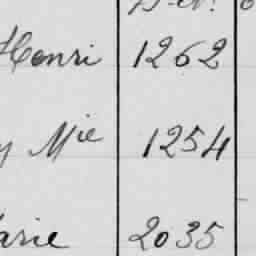 Henri 1262
y Mie 1254
arie 2035